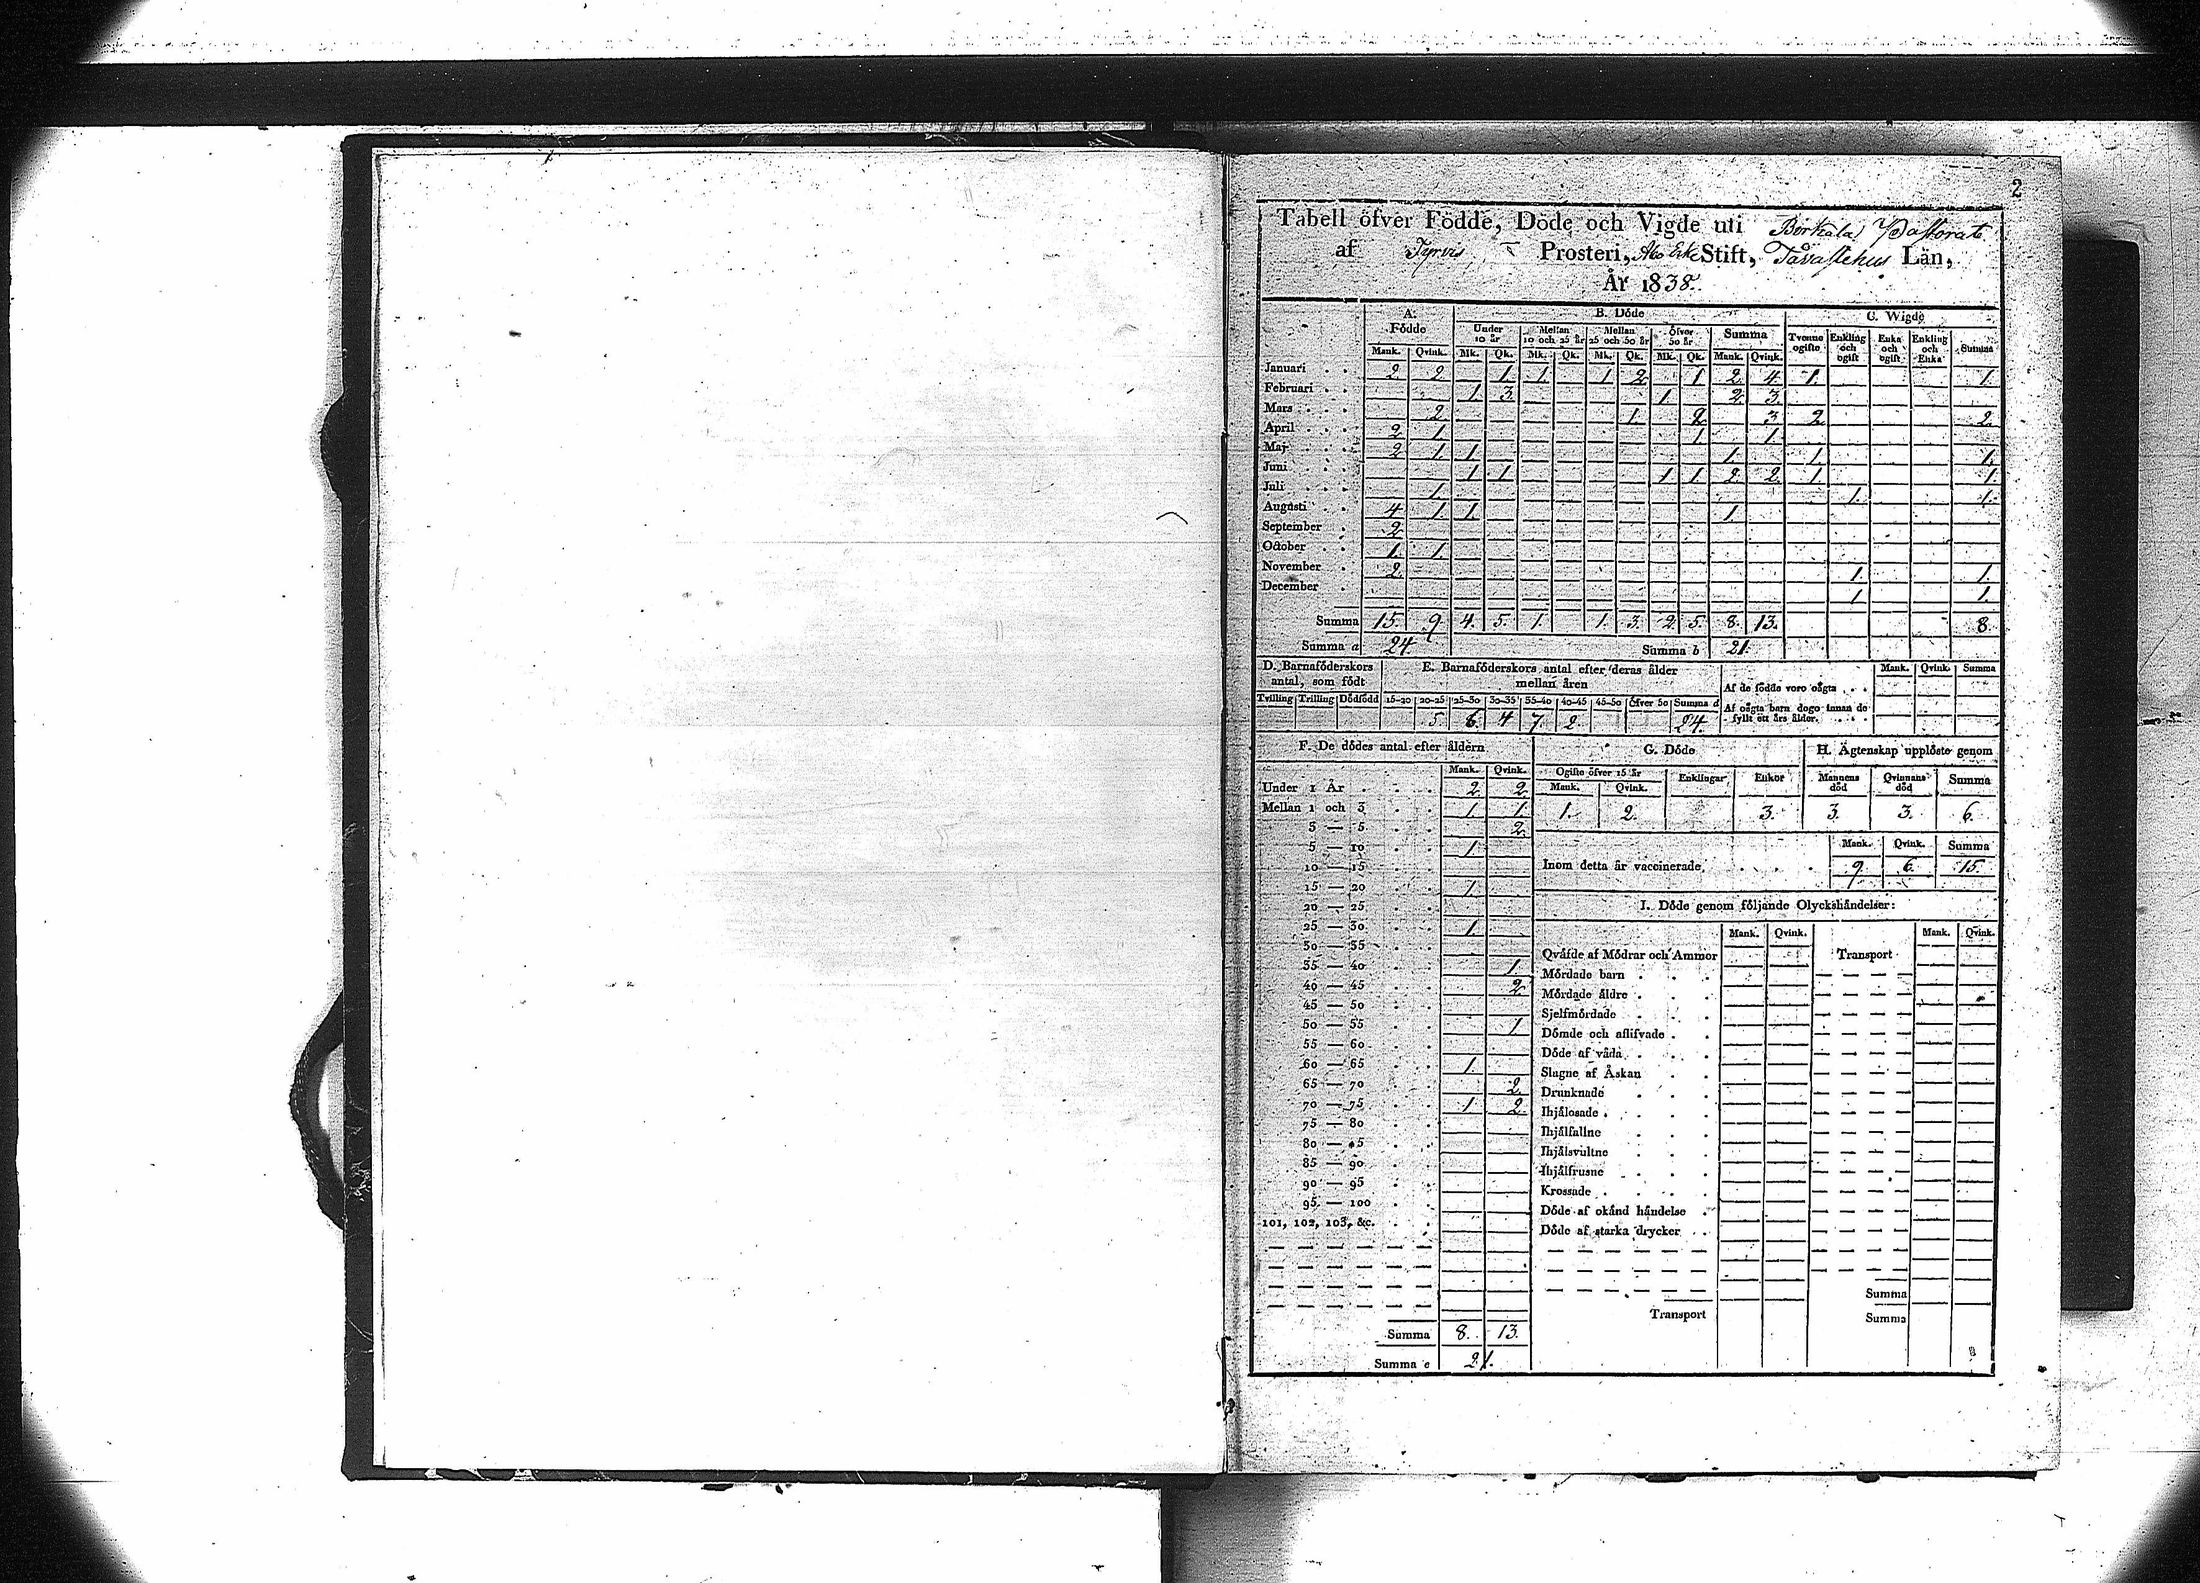 2
Tabell öfver Födde, Döde och Vigde uti Birkala Pastorat
af Tyrvis Prosteri, Åbo Erke Stift, Tavastehus Län,
År 1838.
A. Födde B. Döde C. Wigde
Under 10 år Mellan 10 och 25 år Mellan 25 och 50 år Öfver 50 år Summa Tvenne ogifte Enkling och ogift Enka och ogift Enkling och Enka Summa
Mank. Qvink. Mk. Qk. Mk. Qk. Mk. Qk. Mk. Qk. Mank. Qvink.
Januari 2. 2. 1. 1. 1 2. 1 2. 4. 1. 1.
Februari 1. 3. 1. 2. 3.
Mars 2. 1. 2. 3. 2. 2.
April 2 1. 1. 1.
Maj 2. 1. 1. 1. 1. 1.
Juni 1 1 1 1 2. 2. 1. 1.
Juli 1. 1. 1.
Augusti 4 1. 1. 1.
September 2.
October 1. 1.
November 2. 1. 1.
December 1 1.
Summa 15. 9. 4. 5. 1. 1. 3. 2. 5. 8. 13. 8.
Summa a 24. Summa b 21.
D. Barnaföderskors antal, som födt
Tvilling Trilling Dödfödd
E. Barnaföderskors antal efter deras ålder mellan åren
15-20 20-25 25-30 30-35 35-40 40-45 45-50 Öfver 50 Summa d
5. 6. 4 7. 2. 24.
Mank. Qvink. Summa
Af de födde voro oägta
Af oägta barn dogo innan de fyllt ett års ålder.
F. De dödes antal efter åldern
Mank. Qvink.
Under 1 År 2. 2.
Mellan 1 och 3 1. 1.
3 — 5 2.
5 — 10 1.
10 — 15
15 — 20 1.
20 — 25
25 — 30 1.
30 — 35
35 — 40 1.
40 — 45 2.
45 — 50
50 — 55 1
55 — 60
60 — 65 1.
65 — 70 2.
70 — 75 1 2.
75 — 80
80 — 85
85 — 90
90 — 95
95 — 100
101, 102, 103, &c.
Summa 8. 13.
Summa e 21.
G. Döde
Ogifte öfver 15 år Enklingar Enkor
Mank. Qvink.
1. 2. 3.
H. Ägtenskap upplöste genom
Mannens död Qvinnans död Summa
3. 3. 6.
Mank. Qvink. Summa
Inom detta år vaccinerade, 9. 6. 15.
I. Döde genom följande Olyckshändelser:
Mank. Qvink. Mank. Qvink.
Qväfde af Mödrar och Ammor Transport
Mördade barn
Mördade äldre
Sjelfmördade
Dömde och aflifvade
Döde af våda
Slagne af Åskan
Drunknade
Ihjälosade
Ihjälfallne
Ihjälsvultne
Ihjälfrusne
Krossade
Döde af okänd händelse
Döde af starka drycker
Summa
Transport Summa